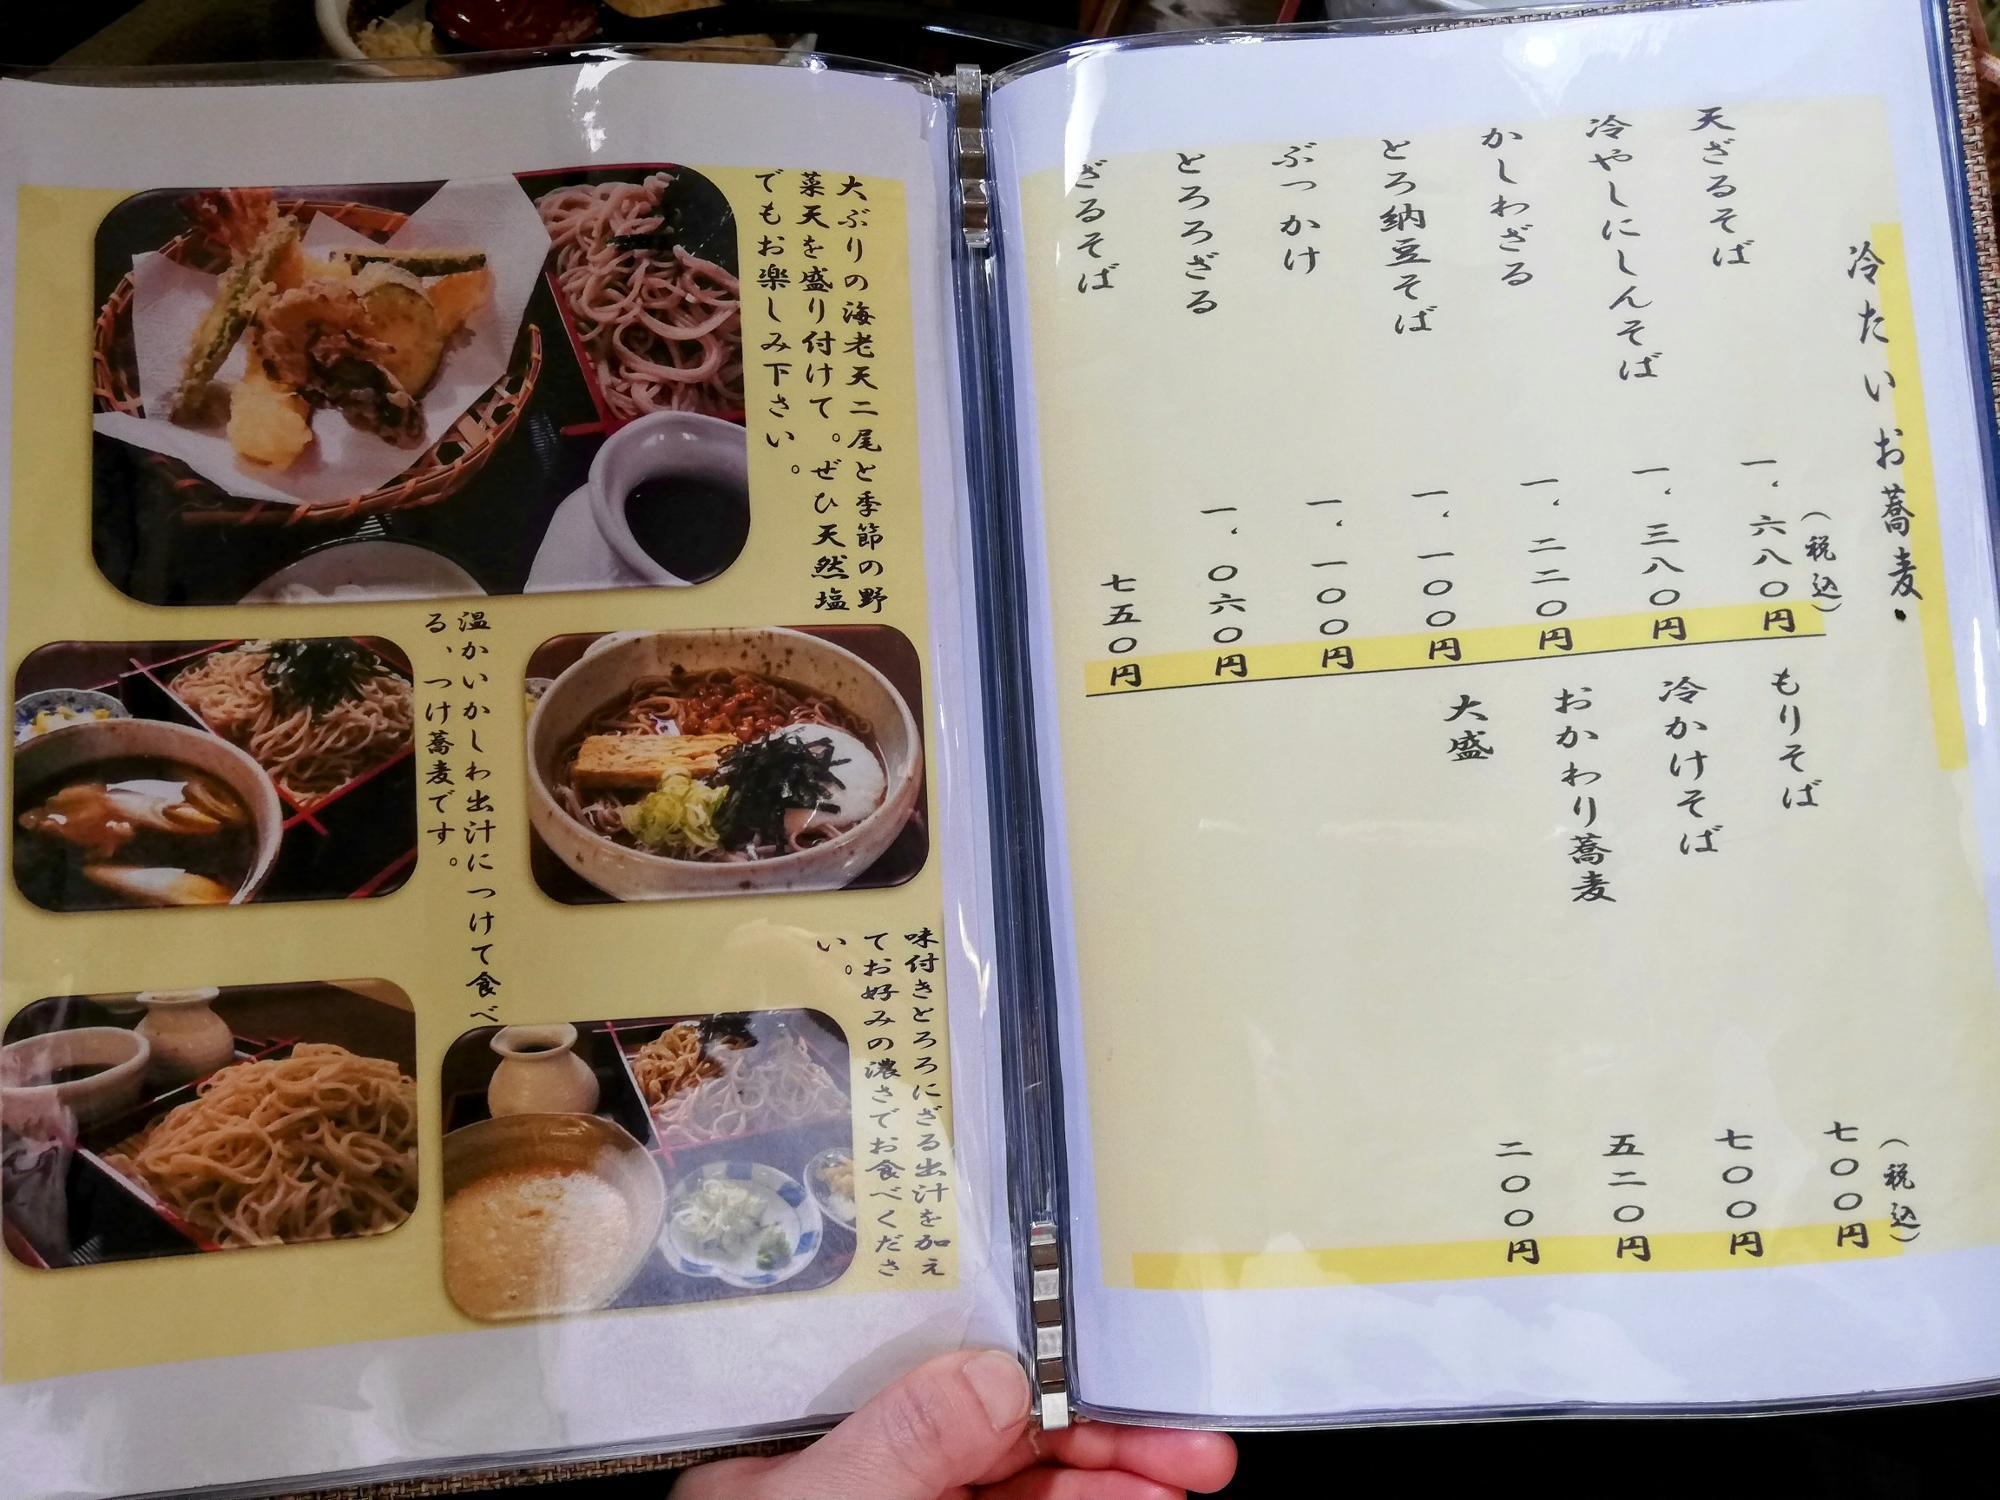 冷たいお蕎麦・
(税込)
天ざるそば 一、六八〇円
冷やしにしんそば 一、三八〇円
かしわざる 一、二二〇円
とろ納豆そば 一、一〇〇円
ぶっかけ 一、一〇〇円
とろろざる 一、〇六〇円
ざるそば 七五〇円
(税込)
もりそば 七〇〇円
冷かけそば 七〇〇円
おかわり蕎麦 五二〇円
大盛 二〇〇円
大ぶりの海老天二尾と季節の野
菜天を盛り付けて。ぜひ天然塩
でもお楽しみ下さい。
温かいかしわ出汁につけて食べ
る、つけ蕎麦です。
味付きとろろにざる出汁を加え
てお好みの濃さでお食べくださ
い。